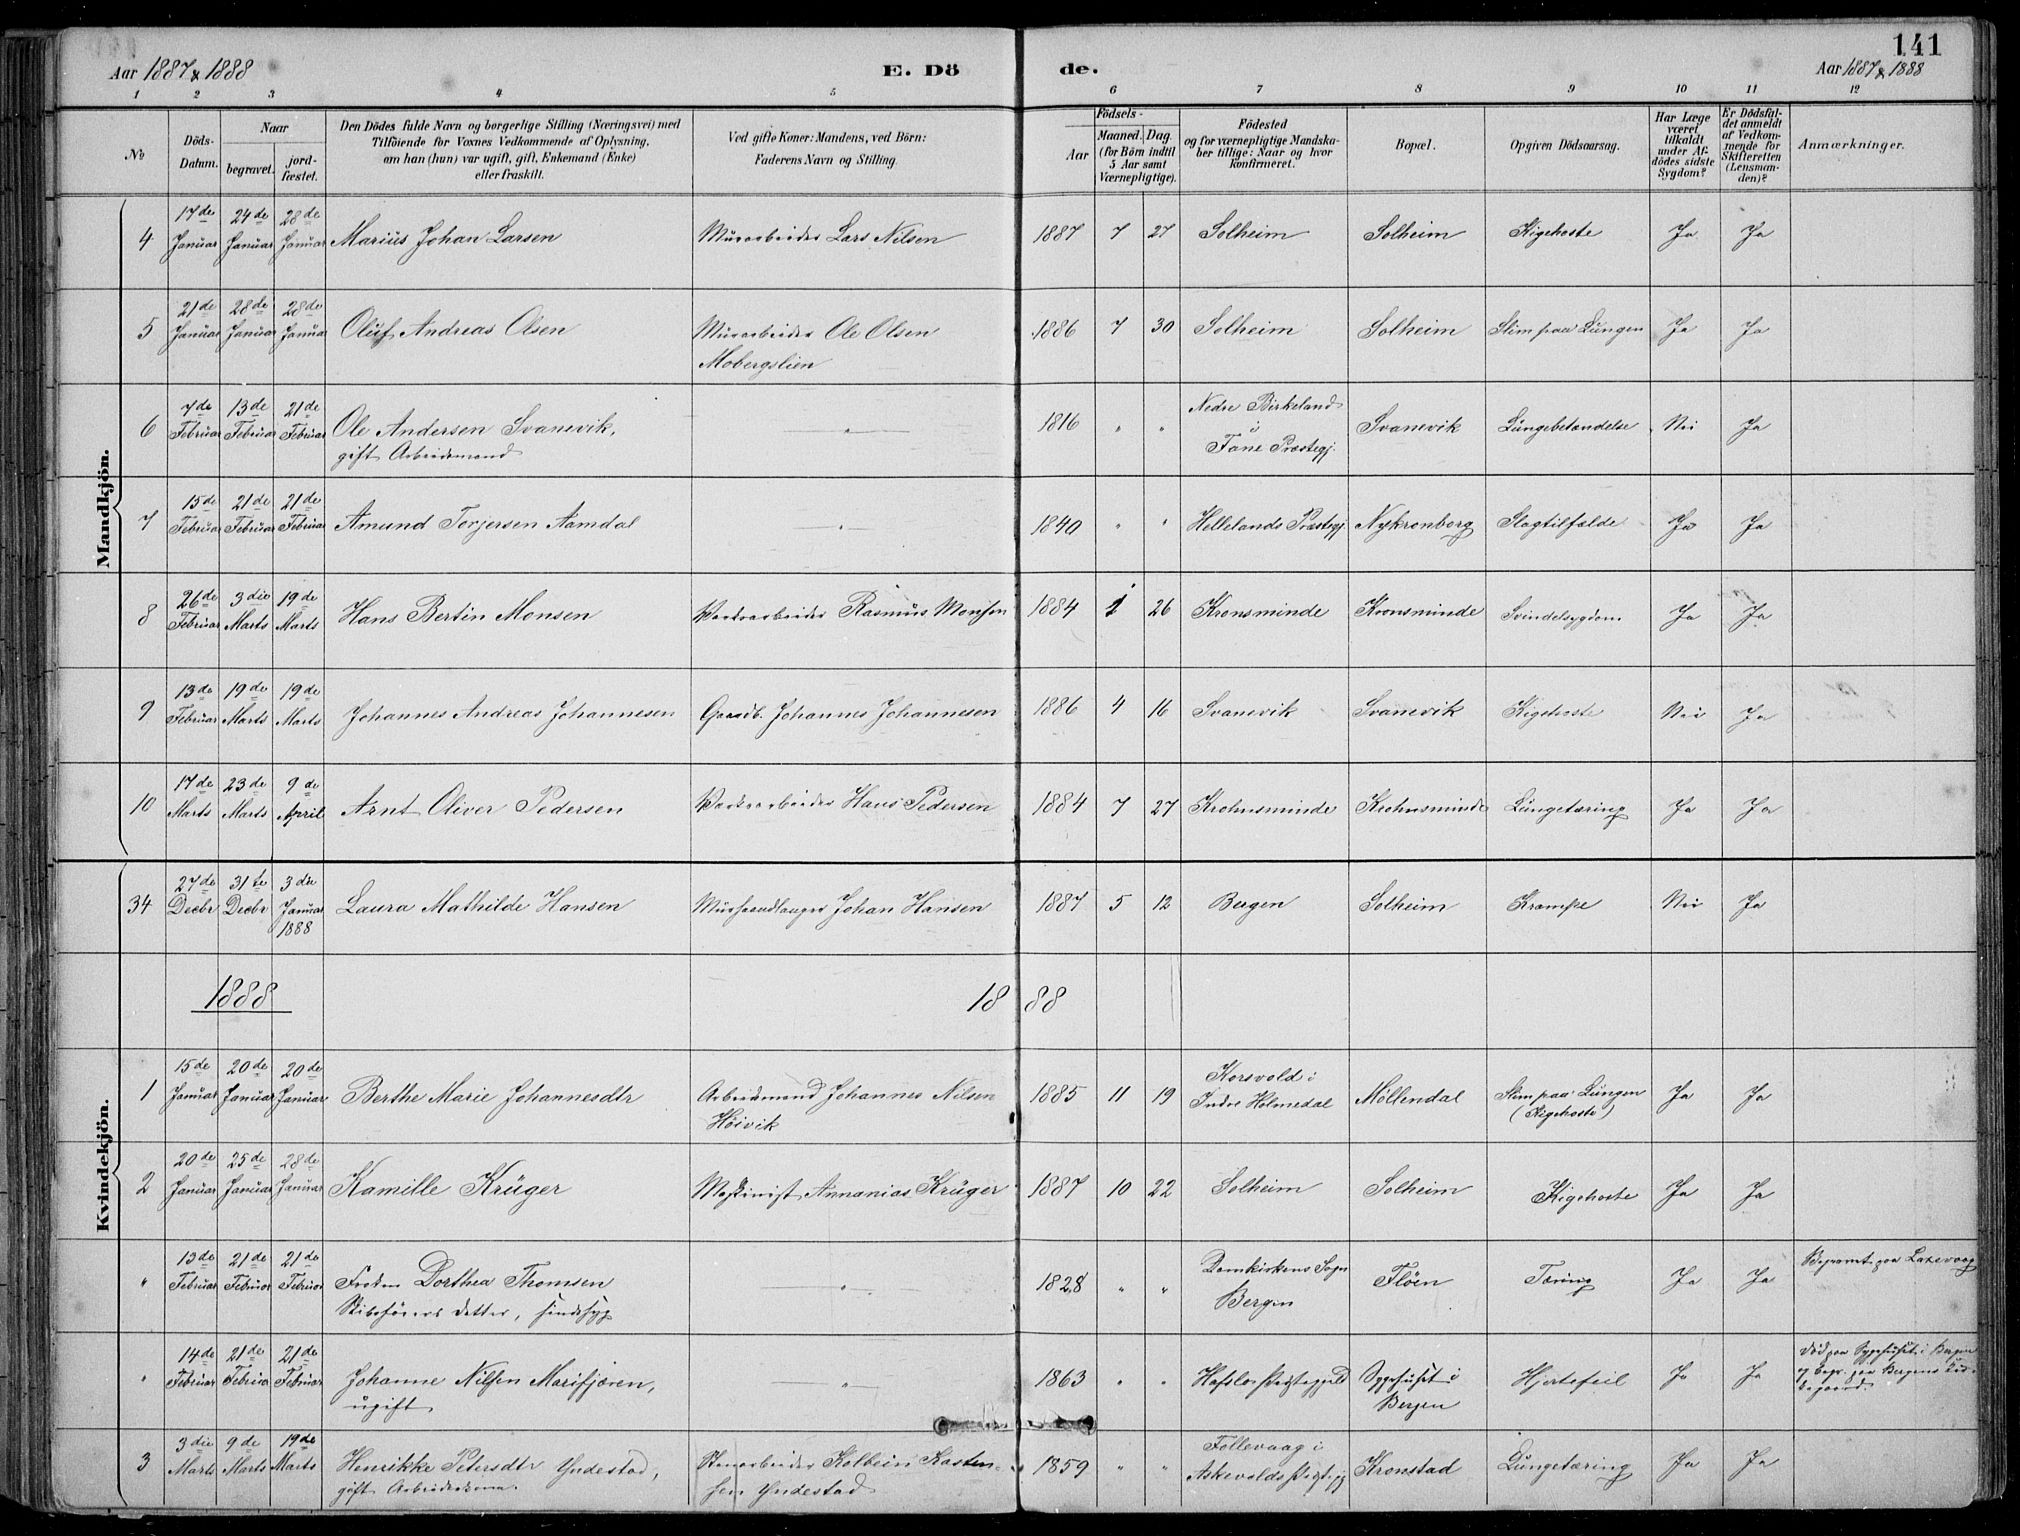 141
Aar 1887 & 1888
E. Dö
de.
Aar 1887 & 1888
1 2 3 4 5 6 7 8 9 10 11 12
No
Döds-
Datum.
Naar
begravet.
jord-
fæstet.
Den Dödes fulde Navn og borgerlige Stilling (Næringsvei) med
Tilföiende for Voxnes Vedkommende af Oplysning,
om han (hun) var ugift, gift, Enkemand (Enke)
eller fraskilt.
Ved gifte Koner: Mandens, ved Börn:
Faderens Navn og Stilling.
Födsels-
Aar
Maaned. Dag.
(for Börn indtil
5 Aar samt
Værnepligtige).
Födested
og for værnepligtige Mandska-
ber tillige: Naar og hvor
konfirmeret.
Bopæl.
Opgiven Dödsaarsag.
Har Læge
været
tilkaldt
under Af-
dödes sidste
Sygdom?
Er Dödsfal-
det anmeldt
af Vedkom-
mende for
Skifteretten
(Lensman-
den)?
Anmærkninger.
Mandkjön.
4 17de Januar 24de Januar 28de Januar Marius Johan Larsen Murarbeider Lars Nilsen 1887 7 27 Solheim Solheim Kigehoste Ja Ja
5 21de Januar 28de Januar 28de Januar Oluf Andreas Olsen Murarbeider Ole Olsen 1886 7 30 Solheim Solheim Slim paa Lungen Ja Ja
Mobergslien
6 7de Februar 13de Februar 21de Februar Ole Andersen Svanevik, " 1816 " " Nedre Birkeland i Fane Præstegj. Svanevik Lungebetændelse Nei Ja
gift Arbeidsmand
7 15de Februar 21de Februar 21de Februar Amund Torjersen Aamdal " 1840 " " Hellelands Præstegj. Nykronborg Slagtilfælde Ja Ja
8 26de Februar 3die Marts 19de Marts Hans Bertin Monsen Værksarbeider Rasmus Monsen 1884 1 26 Kronsminde Kronsminde Svindelsygdom Ja Ja
9 13de Februar 19de Marts 19de Marts Johannes Andreas Johannesen Gaardb. Johannes Johannesen 1886 4 16 Svanevik Svanevik Kigehoste Nei Ja
10 17de Marts 23de Marts 9de April Arnt Oliver Pedersen Værksarbeider Hans Pedersen 1884 7 27 Krohnsminde Krohnsminde Lungetæring Ja Ja
Kvindekjön.
34 27de Decbr 31te Decbr 3die Januar 1888 Laura Mathilde Hansen Murhandlanger Johan Hansen 1887 5 12 Bergen Solheim Krampe Nei Ja
1888 18 88
1 15de Januar 20de Januar 20de Januar Berthe Marie Johannesdtr Arbeidsmand Johannes Nilsen 1885 11 19 Korsvold i Indre Holmedal Möllendal Slim paa Lungen (Kigehoste) Ja Ja
Höivik
2 20de Januar 25de Januar 28de Januar Kamille Krüger Maskinist Annanias Krüger 1887 10 22 Solheim Solheim Kigehoste Ja Ja
" 13de Februar 21de Februar 21de Februar Fröken Dorthea Thomsen " 1828 " " Domkirkens Sogn Bergen Flöen Tæring Ja Ja Begravet paa Laxevaag
Skibsförers Datter, sindssyg
" 14de Februar 21de Februar 21de Februar Johanne Nilsen Marifjæren, " 1863 " " Hafslo Præstegjeld Sygehuset i Bergen Hjertefeil Ja Ja Död paa Sygehuset i Bergen
ugift
3 3die Marts 9de Marts 19de Marts Henrikke Petersdtr Yndestad, Stenarbeider Kolbein Karsten- 1859 " " Follevaag i Askevolds Prstgj Kronstad Lungetæring Ja Ja
gift Arbeiderkone. sen Yndestad